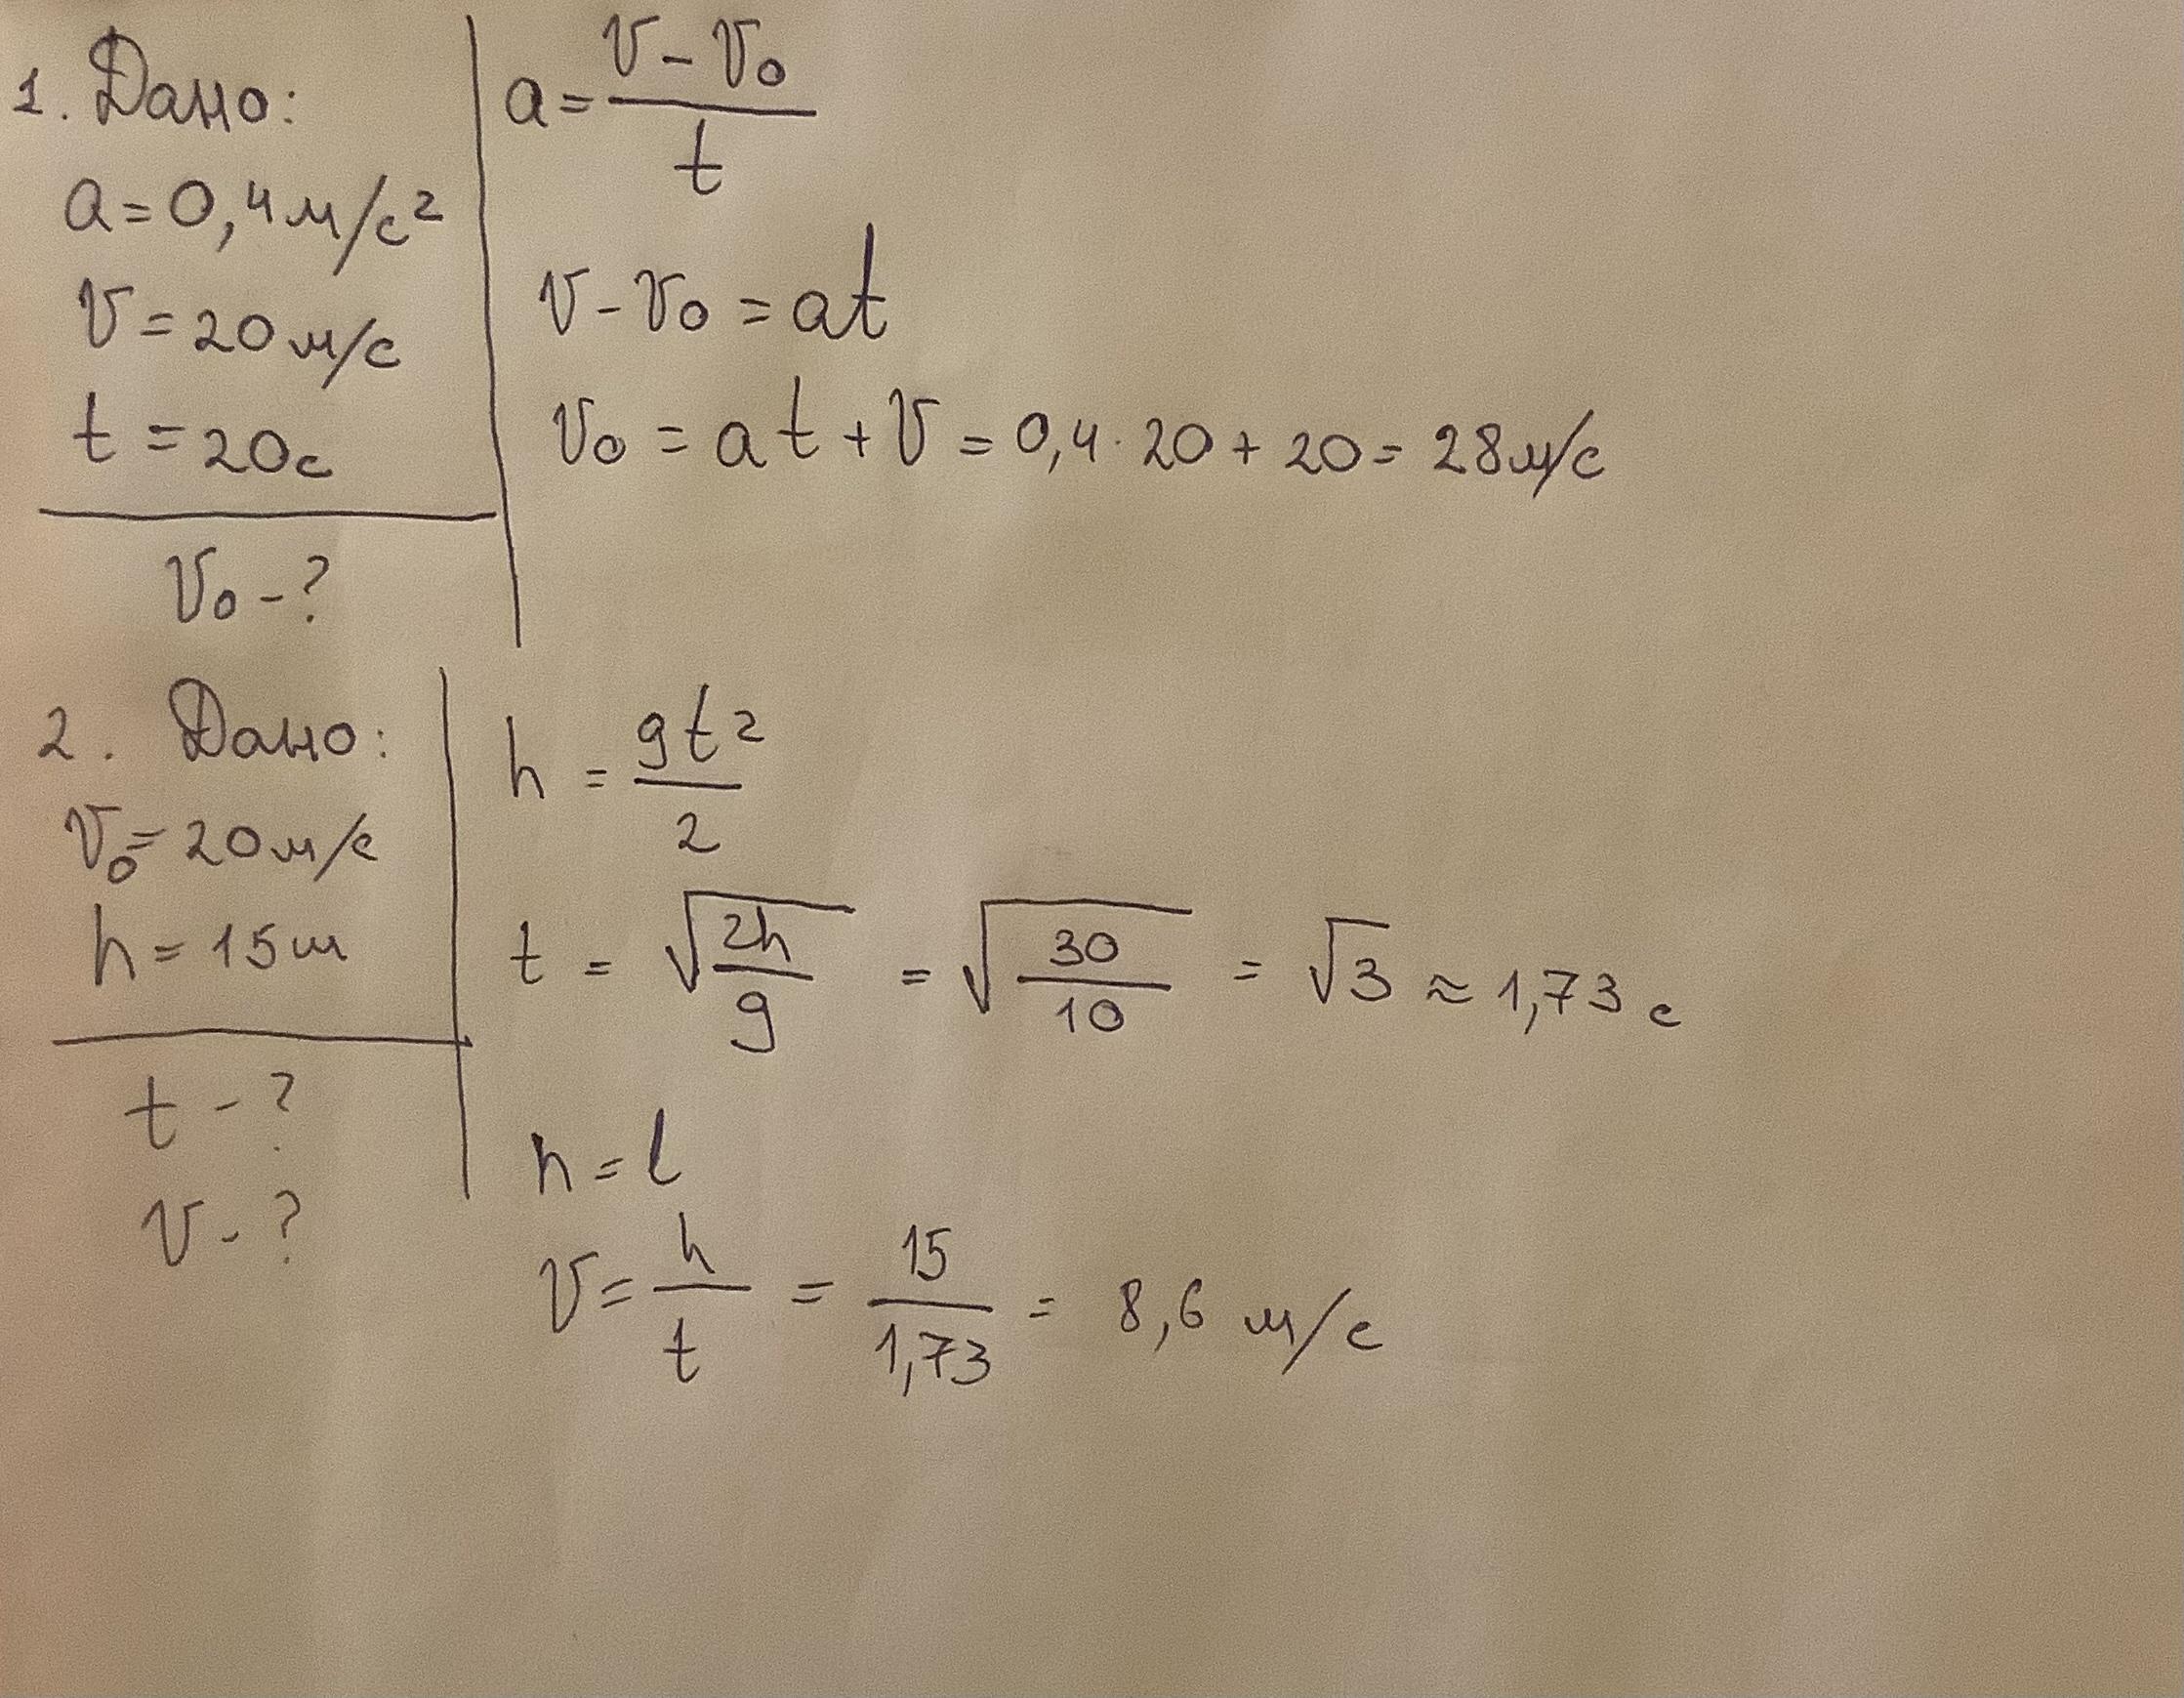 1. Дано:
a=0,4м/с²
v=20м/с
t=20с
v₀-?
a=(v-v₀)/t
v-v₀=at
v₀=at+v=0,4·20+20=28м/с
2. Дано:
v₀=20м/с
h=15м
t-?
v-?
h=gt²/2
t=√(2h/g)=√(30/10)=√3≈1,73с
h=l
v=h/t=15/1,73=8,6 м/с